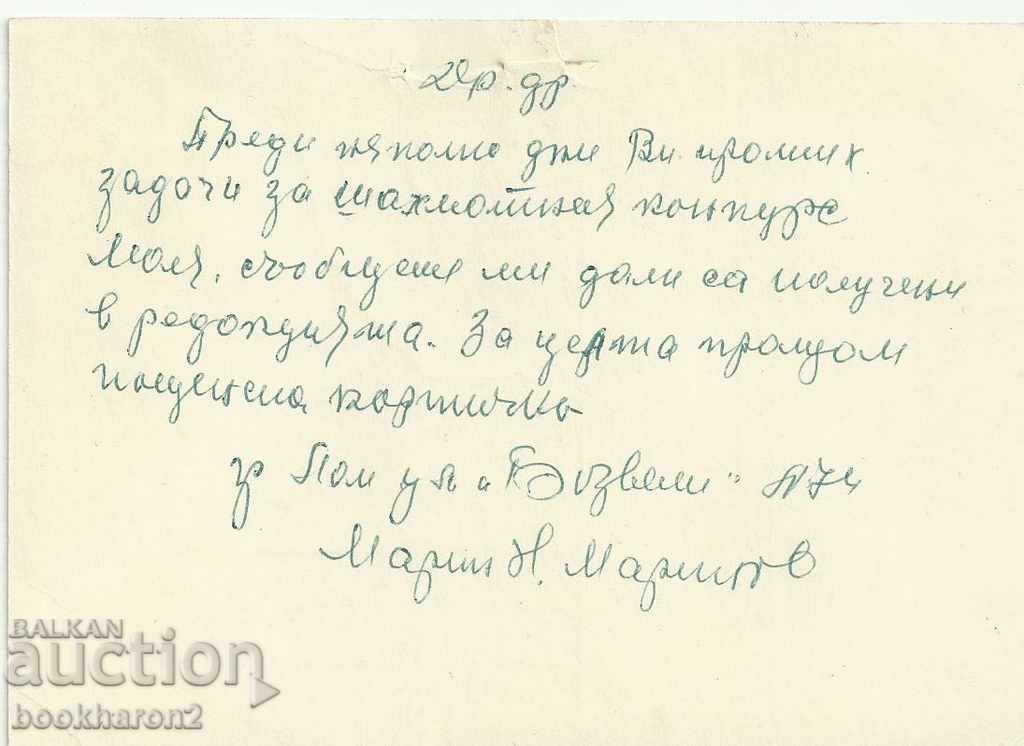 Др. др.
Преди няколко дни Ви пратих
задачи за шахматния конкурс
Моля, съобщете ми дали са получени
в редакцията. За целта пращам
пощенска картичка
гр Лом ул "Бозвели" №74
Марин Н. Маринов
BALKAN
auction
bookharon2